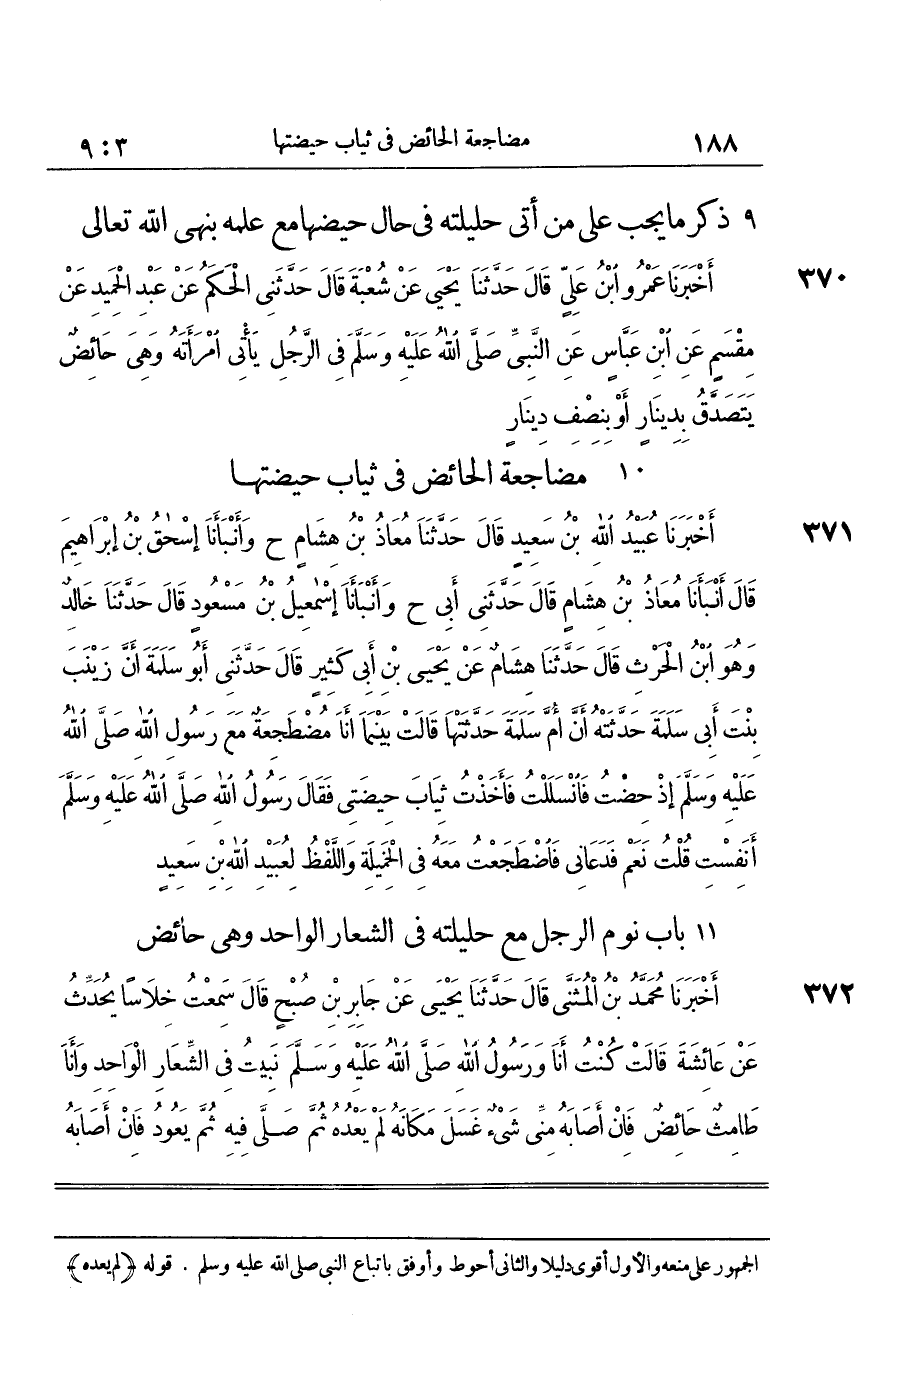 ١٨٨ مضاجعة الحائض فى ثياب حيضتها ٣ : ٩
٩ ذكر ما يجب على من أتى حليلته فى حال حيضها مع علمه بنهى الله تعالى
٣٧٠ أَخْبَرَنَا عَمْرُو ابْنُ عَلِيٍّ قَالَ حَدَّثَنَا يَحْيَى عَنْ شُعْبَةَ قَالَ حَدَّثَنِى الْحَكَمُ عَنْ عَبْدِ الْحَمِيدِ عَنْ
مِقْسَمٍ عَنِ ابْنِ عَبَّاسٍ عَنِ النَّبِىِّ صَلَّى اللهُ عَلَيْهِ وَسَلَّمَ فِى الرَّجُلِ يَأْتِى امْرَأَتَهُ وَهِىَ حَائِضٌ
يَتَصَدَّقُ بِدِينَارٍ أَوْ بِنِصْفِ دِينَارٍ
١٠ مضاجعة الحائض فى ثياب حيضتها
٣٧١ أَخْبَرَنَا عُبَيْدُ اللهِ بْنُ سَعِيدٍ قَالَ حَدَّثَنَا مُعَاذُ بْنُ هِشَامٍ ح وَأَنْبَأَنَا إِسْحٰقُ بْنُ إِبْرَاهِيمَ
قَالَ أَنْبَأَنَا مُعَاذُ بْنُ هِشَامٍ قَالَ حَدَّثَنِى أَبِى ح وَأَنْبَأَنَا إِسْمٰعِيلُ بْنُ مَسْعُودٍ قَالَ حَدَّثَنَا خَالِدٌ
وَهُوَ ابْنُ الْحَرْثِ قَالَ حَدَّثَنَا هِشَامٌ عَنْ يَحْيَى بْنِ أَبِى كَثِيرٍ قَالَ حَدَّثَنِى أَبُو سَلَمَةَ أَنَّ زَيْنَبَ
بِنْتَ أَبِى سَلَمَةَ حَدَّثَتْهُ أَنَّ أُمَّ سَلَمَةَ حَدَّثَتْهَا قَالَتْ بَيْنَمَا أَنَا مُضْطَجِعَةٌ مَعَ رَسُولِ اللهِ صَلَّى اللهُ
عَلَيْهِ وَسَلَّمَ إِذْ حِضْتُ فَانْسَلَلْتُ فَأَخَذْتُ ثِيَابَ حِيضَتِى فَقَالَ رَسُولُ اللهِ صَلَّى اللهُ عَلَيْهِ وَسَلَّمَ
أَنَفِسْتِ قُلْتُ نَعَمْ فَدَعَانِى فَاضْطَجَعْتُ مَعَهُ فِى الْخَمِيلَةِ وَاللَّفْظُ لِعُبَيْدِ اللهِ بْنِ سَعِيدٍ
١١ باب نوم الرجل مع حليلته فى الشعار الواحد وهى حائض
٣٧٢ أَخْبَرَنَا مُحَمَّدُ بْنُ الْمُثَنَّى قَالَ حَدَّثَنَا يَحْيَى عَنْ جَابِرِ بْنِ صُبْحٍ قَالَ سَمِعْتُ خِلَاسًا يُحَدِّثُ
عَنْ عَائِشَةَ قَالَتْ كُنْتُ أَنَا وَرَسُولُ اللهِ صَلَّى اللهُ عَلَيْهِ وَسَلَّمَ نَبِيتُ فِى الشِّعَارِ الْوَاحِدِ وَأَنَا
طَامِثٌ حَائِضٌ فَإِنْ أَصَابَهُ مِنِّى شَىْءٌ غَسَلَ مَكَانَهُ لَمْ يَعْدُهُ ثُمَّ صَلَّى فِيهِ ثُمَّ يَعُودُ فَإِنْ أَصَابَهُ
الجمهور على منعه والأول أقوى دليلا والثانى أحوط وأوفق باتباع النبى صلى الله عليه وسلم . قوله ﴿لم يعده﴾